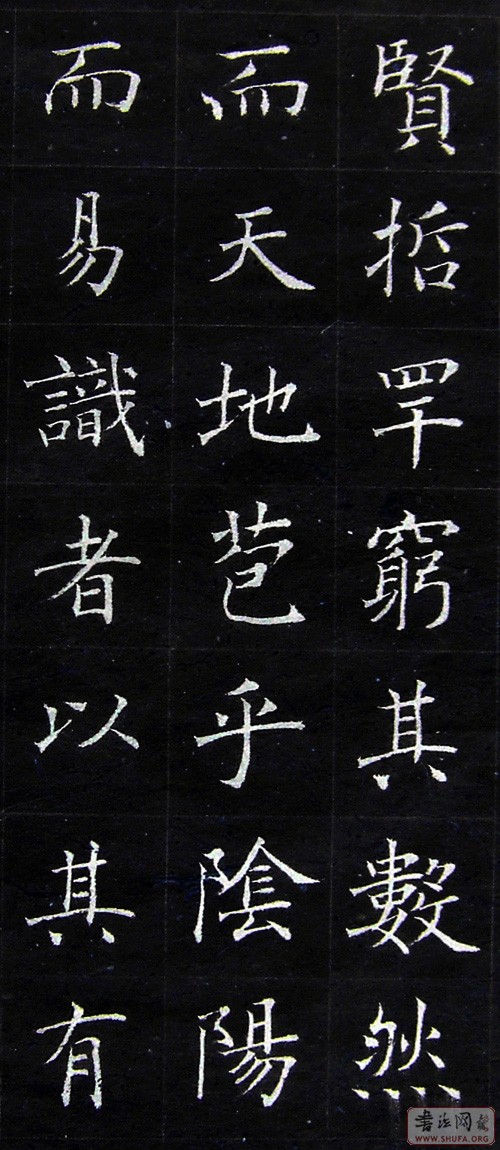 賢哲罕窮其數然
而天地苞乎陰陽
而易識者以其有
書法网
WWW.SHUFA.ORG